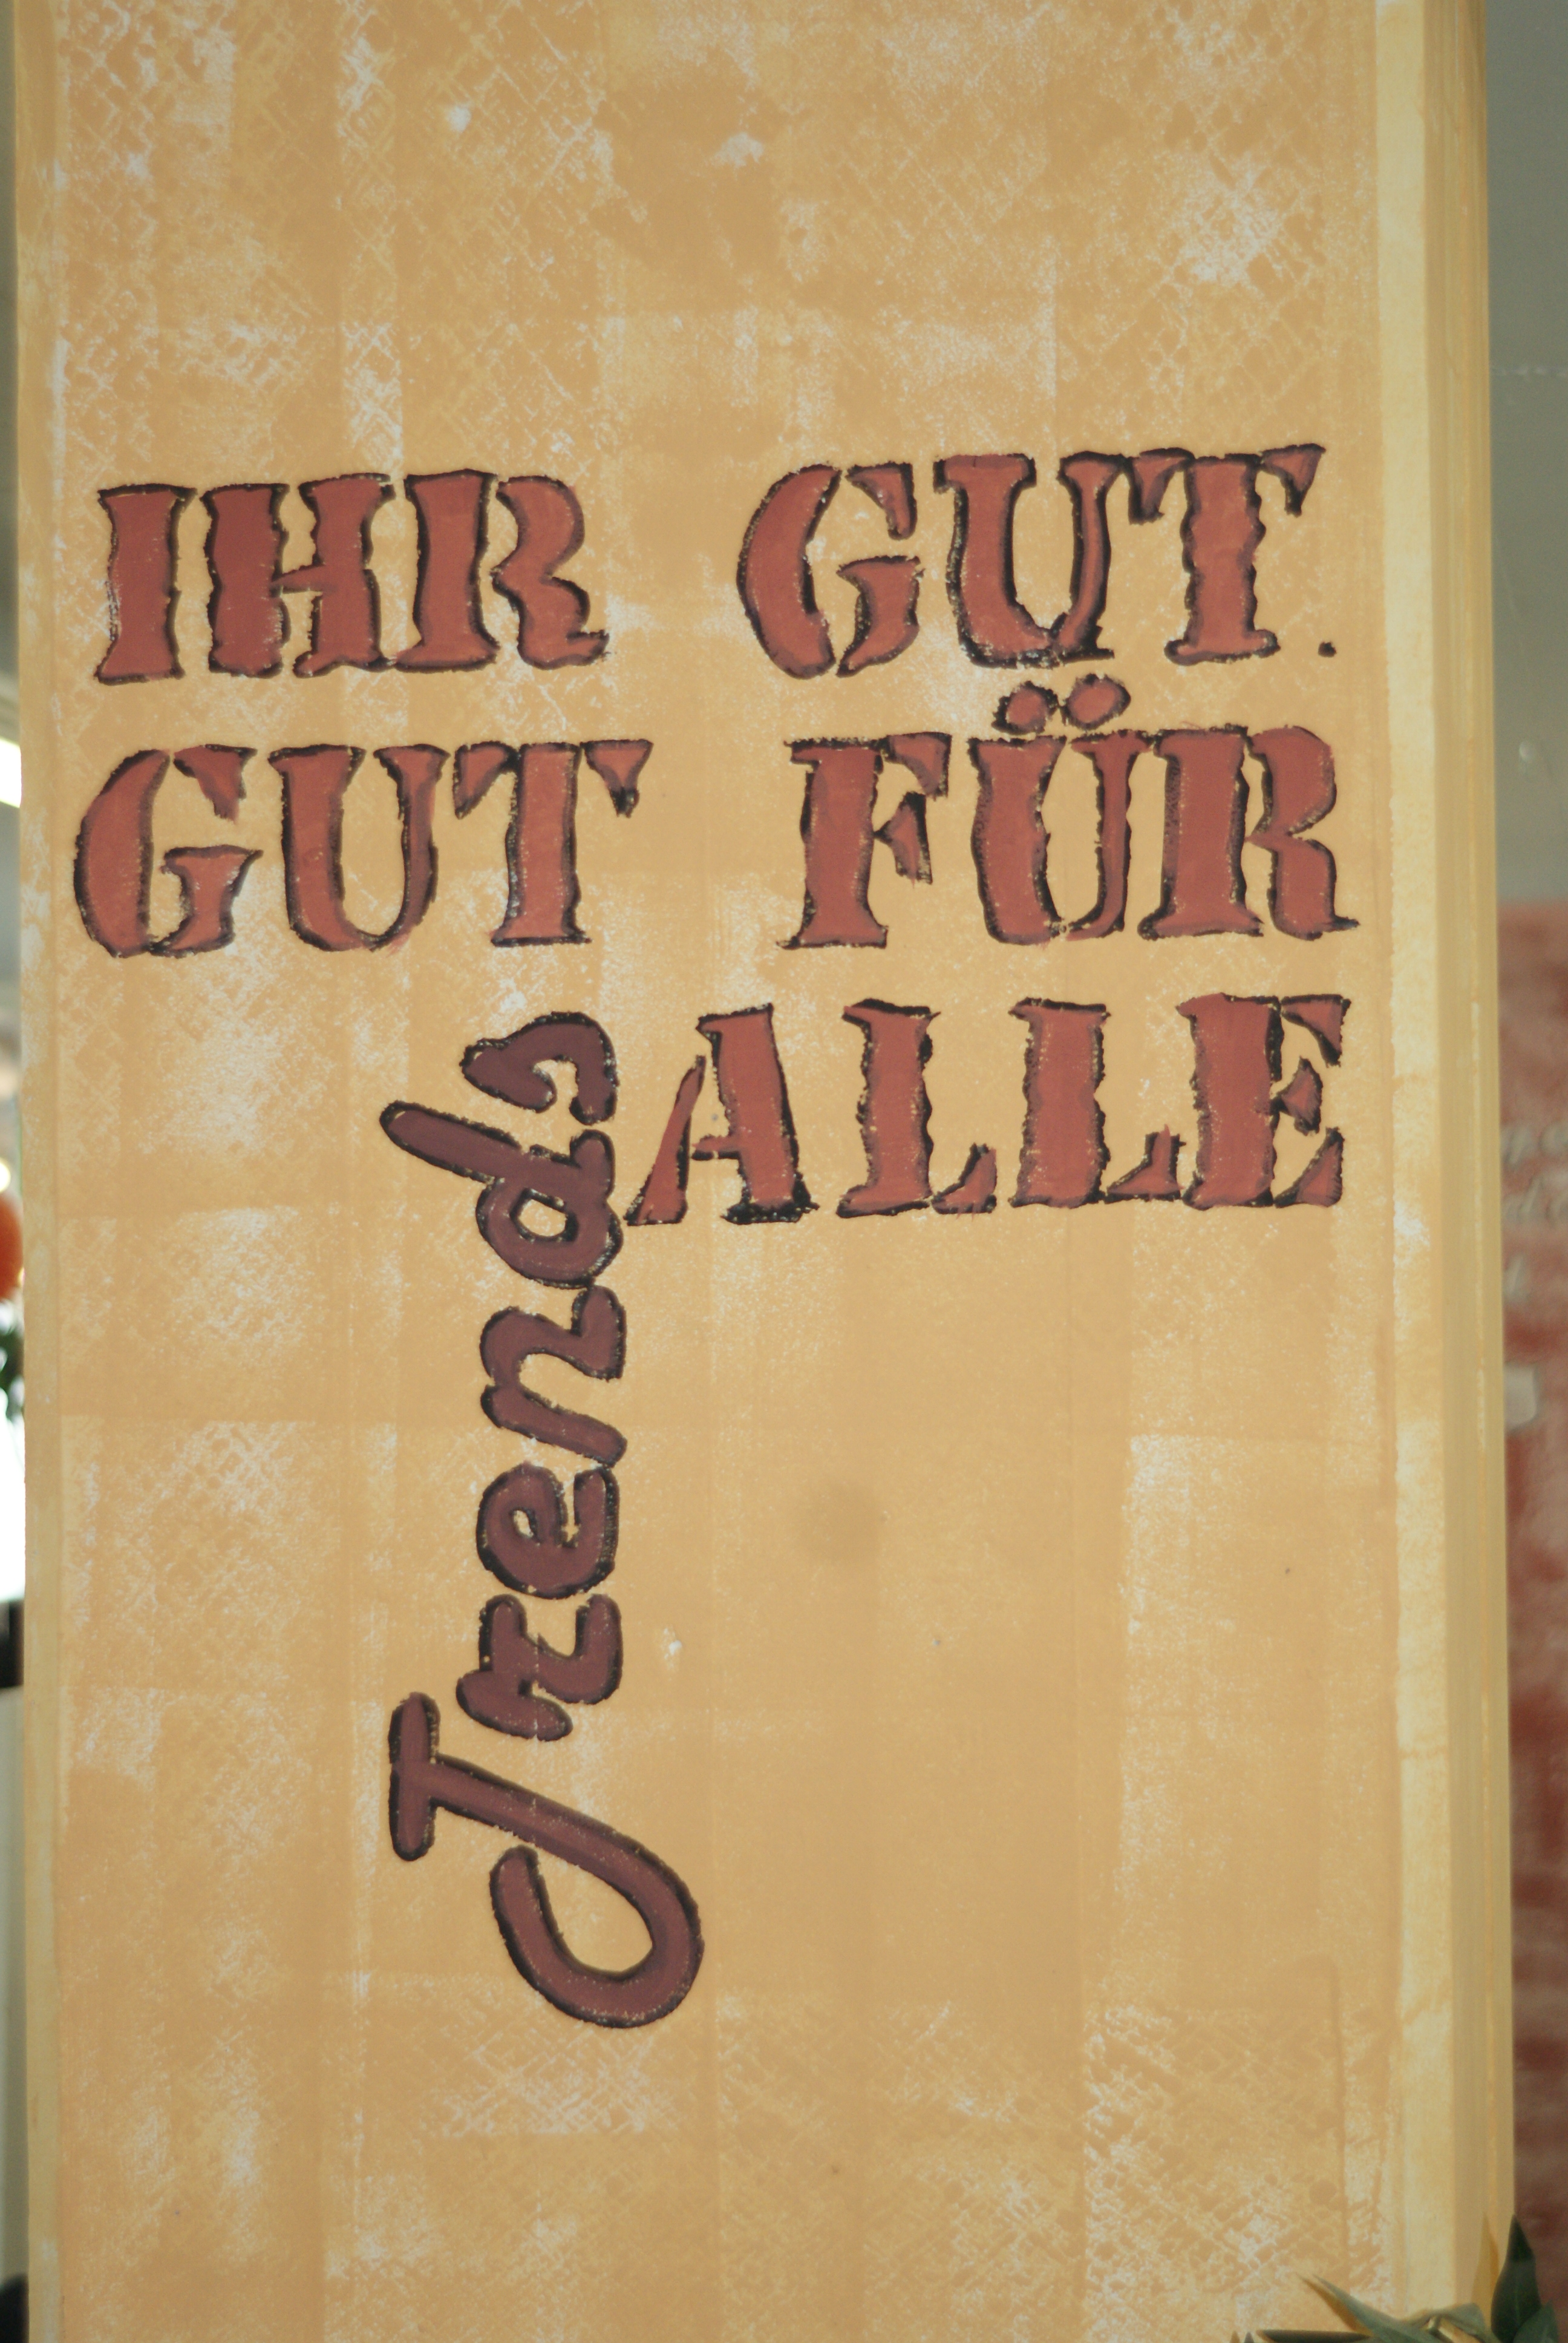 IHR GUT.
GUT FÜR
ALLE
Trends